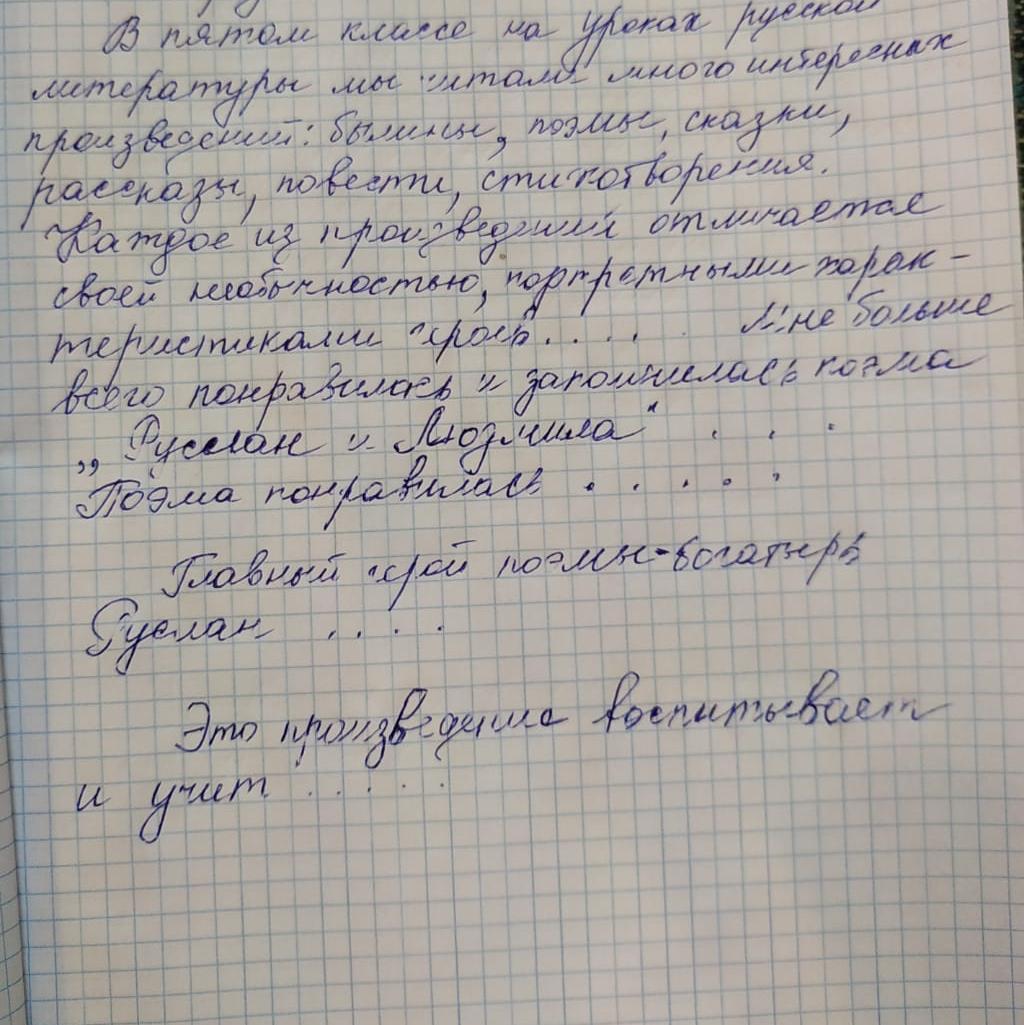 В пятом классе на уроках русской
литературы мы читали много интересных
произведений: былины, поэмы, сказки,
рассказы, повести, стихотворения.
Каждое из произведений отличается
своей необычностью, портретными харак-
теристиками героев..... Мне больше
всего понравилась и запомнилась поэма
„Руслан и Людмила" . . .
Поэма понравилась . . . . .
Главный герой поэмы-богатырь
Руслан ....
Это произведение воспитывает
и учит .....